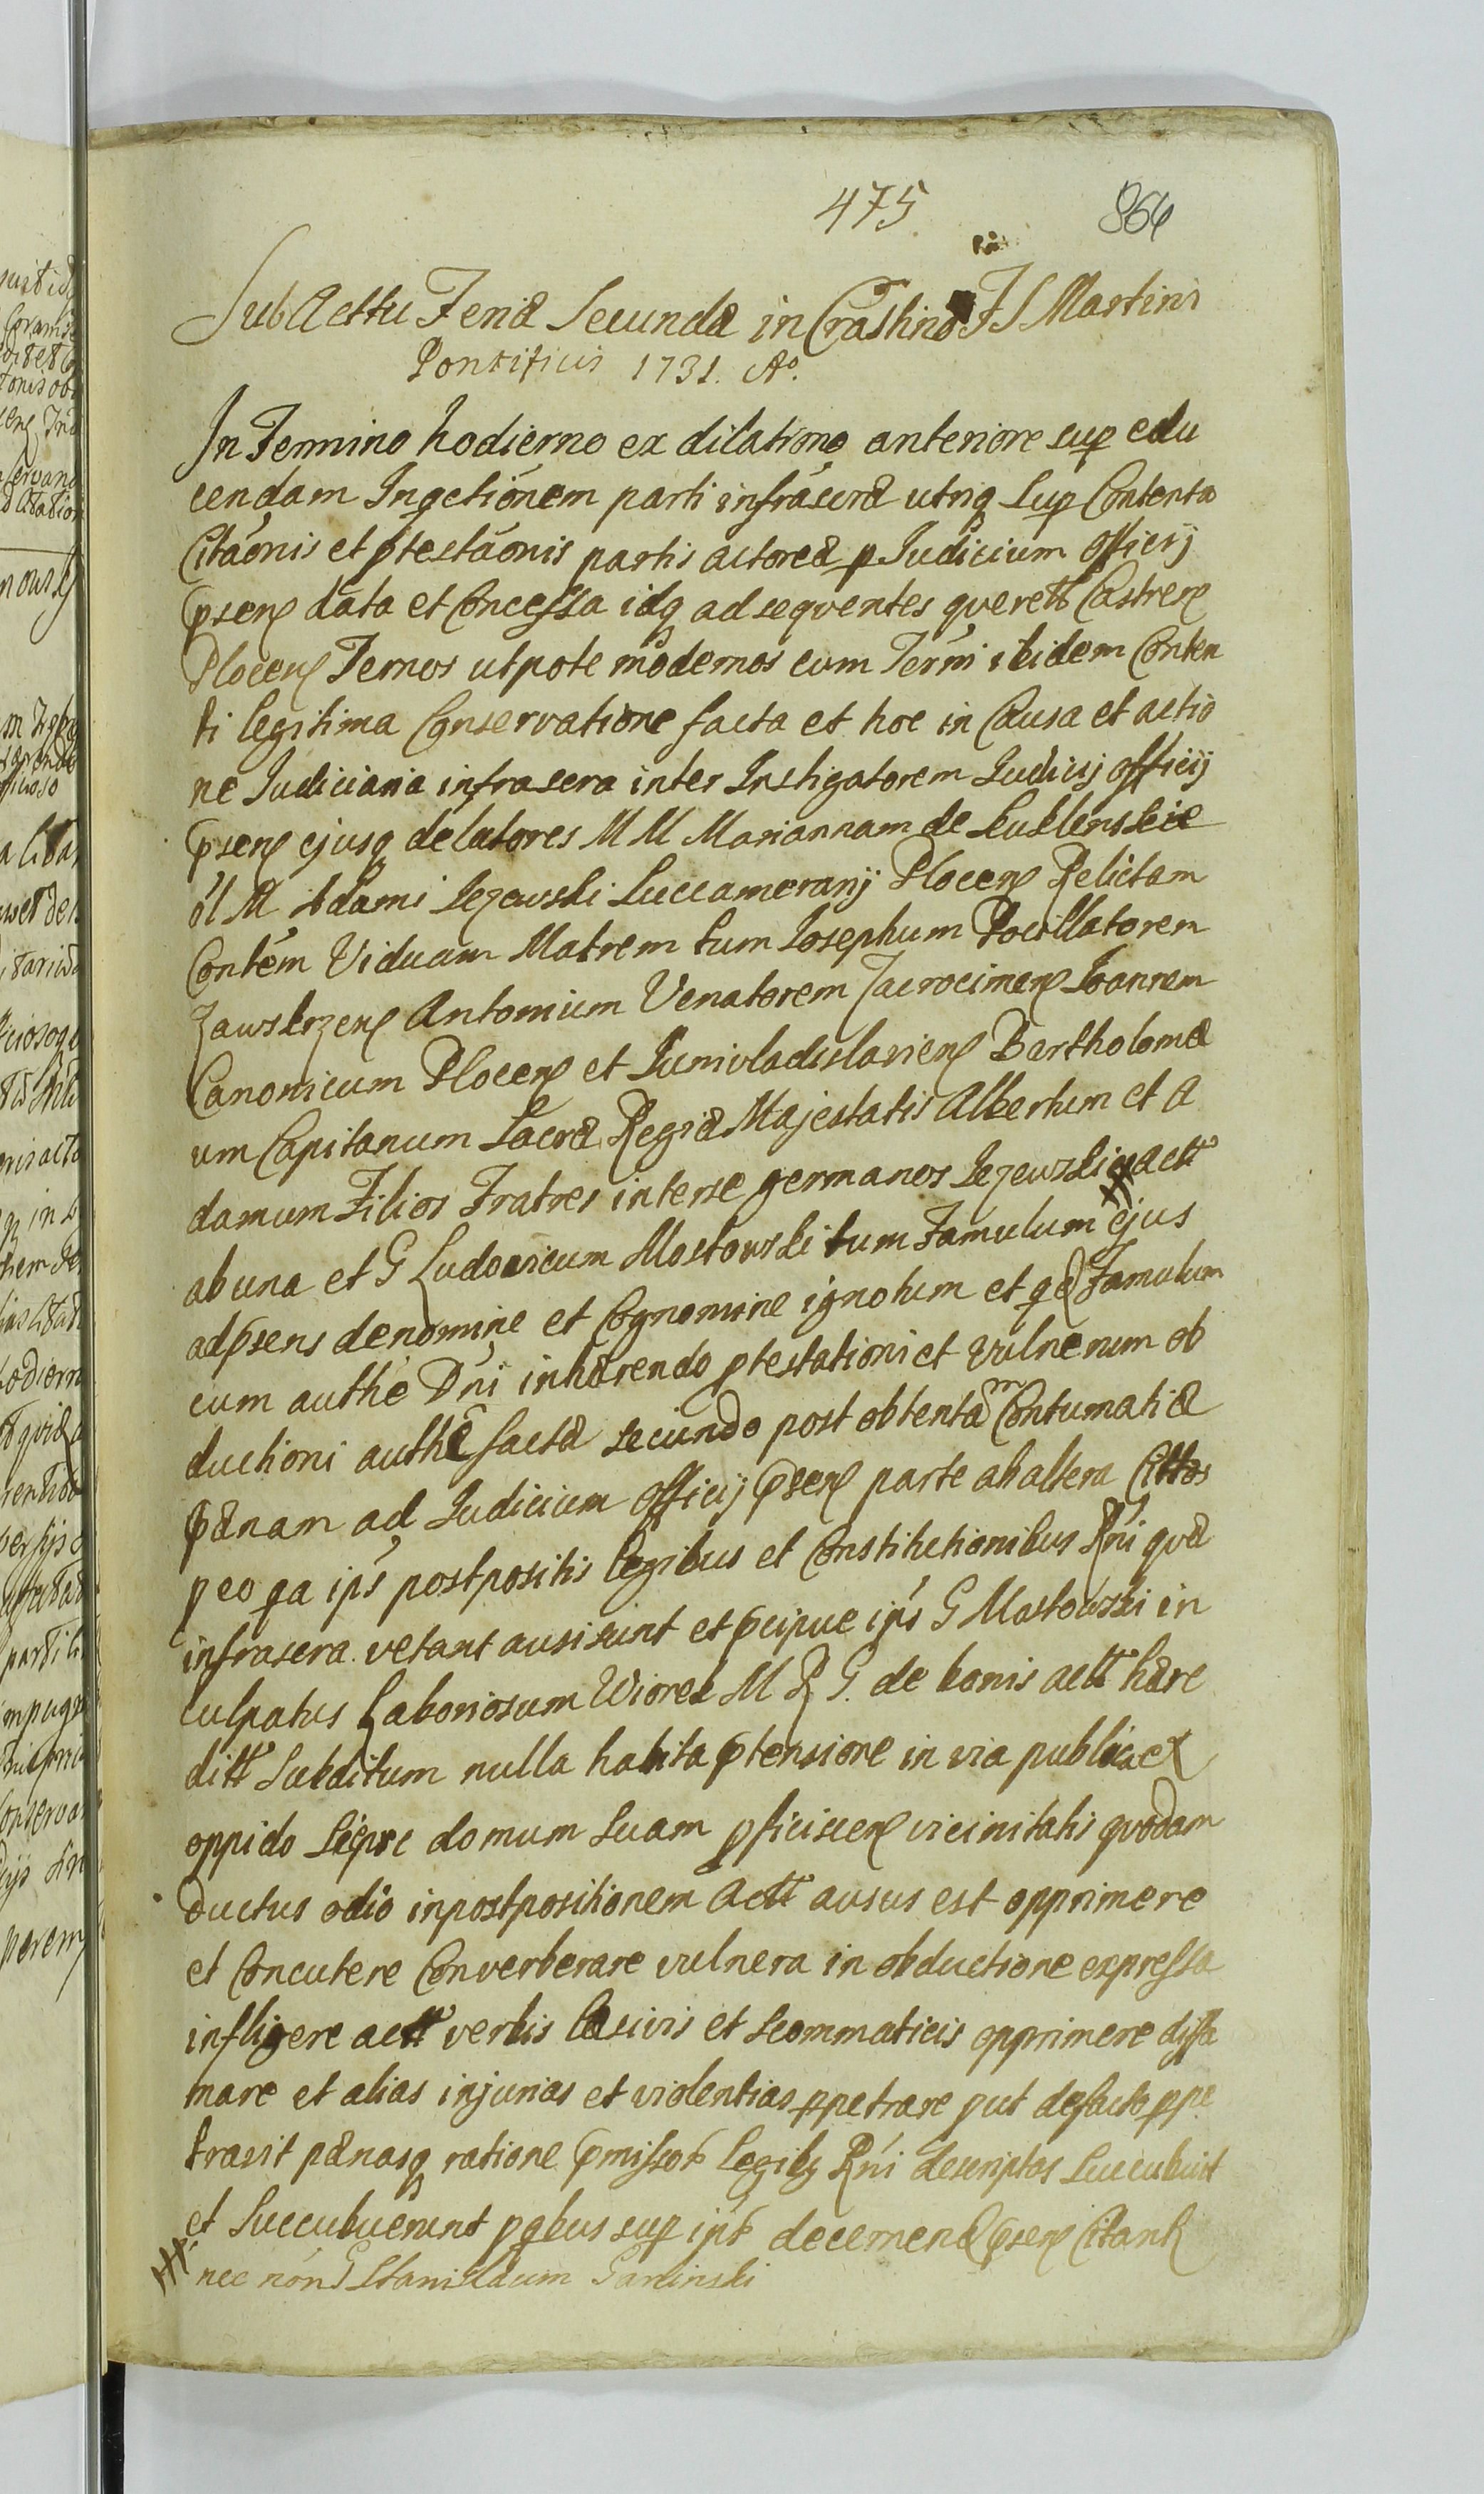 475
866
Sub Acttu Feria Secunda in Crastino F S Martini
Pontificis 1731. Ao.
In Termino hodierno ex dilatione anteriore sup edu
cendam Inqctiónem parti infrascra utriq sup Contenta
Citaónis et ptestaónis partis actorea p Judicium officij
psens data et Concessa idq ad sequentes querell Castrens
Plocens Ternos utpote modernos cum Termi ibidem Conten
ti legitima Conservatione facta et hoc in Causa et actio
ne Judiciaria infrascra inter Instigatorem Judicij officij
psens ejusq delatores M M Mariannam de Kuklenskie
ol M Adami Jezewski Succamerarij Plocens Relictam
Contém Viduam Matrem tum Josephum Pocillatorem
Zawskrzens Antonium Venatorem Zacrocimens Joannem
Canonicum Plocens et Junivladislaviens Bartholomæ
um Capitanum Sacræ Regiæ Majestatis Albertum et A
damum Filios Fratres interse germanos Jezewskie actt
ab una et G Ludovicum Mostowski tum Famulum ejus
ad psens denomine et Cognomine ignotum et qd Famulum
cum authe Dni inhærendo ptestationi et vulnerum ob
ductioni authe factæ secundo post obtentam Contumatiæ
pænam ad Judicium officij psens parte ab altera Cittos
p eo qa ips postpositis legibus et Constitutionibus Rni quæ
infrascra vetant ausi sunt et pcipue ips G Mostowski in
culpatus Laboriosum Wiorek M R G. de bonis actt hære
ditt Subditum nulla habita ptensione in via publica ex
oppido Sierpc domum suam pficiscens vicinitatis quodam
ductus odio inpostpositionem actt ausus est opprimere
et Concutere Converberare vulnera in obductione expressa
infligere actt verbis læsivis et scommaticis opprimere diffa
mare et alias injurias et violentias ppetrare put defacto ppe
travit pænasq ratione pmissor legibq Rni descriptas succubuit
et succubuerunt p qbus sup ips decernend psens Citant
nec non G Stanislaum Garlinski